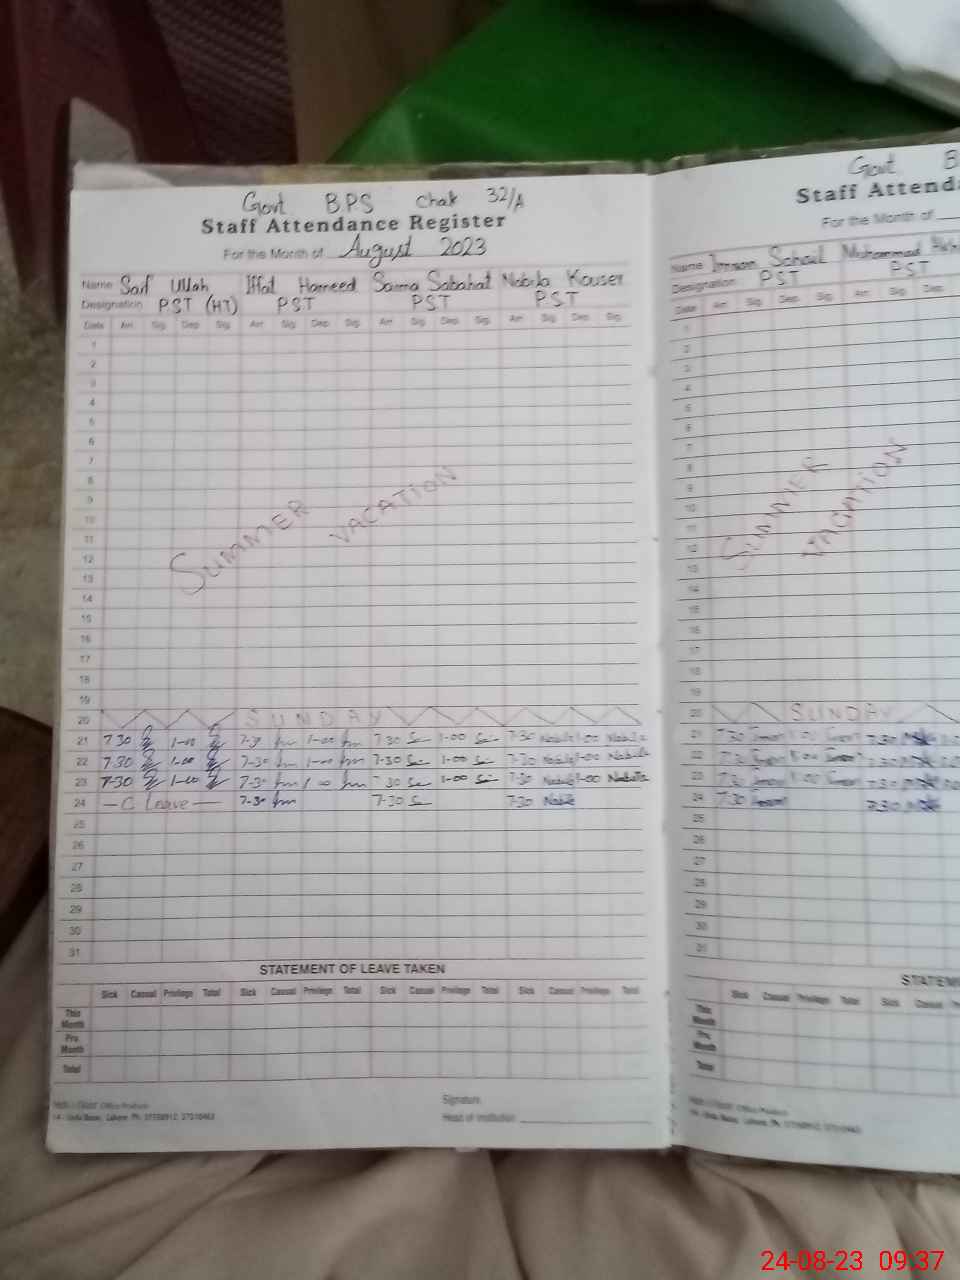 Govt BPS Chak 32/A
Staff Attendance Register
For the Month of August 2023
Name Saif Ullah Iffat Hameed Saima Sabahat Nabila Kouser
Designation PST (HT) PST PST PST
Date Arr. Sig. Dep. Sig. Arr. Sig. Dep. Sig. Arr. Sig. Dep. Sig. Arr. Sig. Dep. Sig.
1
2
3
4
5
6
7
8
9
10
11
12
13
14
15
16
17
18
19
SUMMER VACATION
20 SUNDAY
21 7.30 1-00 7-30 1-00 7.30 1-00 7-30 Nabila 1-00 Nabila
22 7.30 1-00 7-30 1-00 7-30 1-00 7-30 Nabila 1-00 Nabila
23 7-30 1-00 7-30 1-00 7.30 1-00 7-30 Nabila 1-00 Nabila
24 - C Leave - 7-30 7-30 7-30 Nabila
25
26
27
28
29
30
31
STATEMENT OF LEAVE TAKEN
Sick Casual Privilege Total Sick Casual Privilege Total Sick Casual Privilege Total Sick Casual Privilege Total
This Month
Pre. Month
Total
Signature
Head of Institution
Office Products
14 - Urdu Bazar, Lahore. Ph:
Govt B
Staff Attenda
For the Month of
Name Imran Sohail Muhammad
Designation PST PST
Date Arr. Sig. Dep. Sig. Arr. Sig. Dep.
1
2
3
4
5
6
7
8
9
10
11
12
13
14
15
16
17
18
19
SUMMER VACATION
20 SUNDAY
21 7.30 1.00 7.30
22 7.30 1.00 7.30
23 7.30 1.00 7.30
24 7.30 7.30
25
26
27
28
29
30
31
STATEM
Sick Casual Privilege Total Sick Casual
This Month
Pre. Month
Total
Office Products
24-08-23 09:37